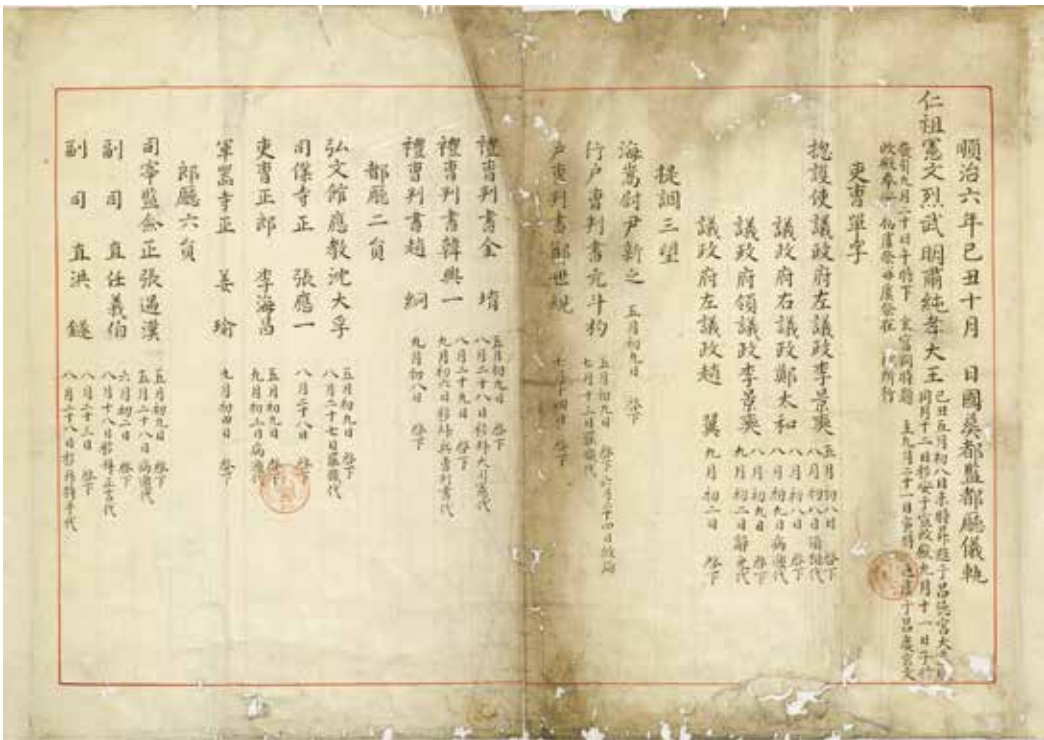 順治六年己丑十月　日國葬都監都廳儀軌
仁祖憲文烈武明肅純孝大王
己丑五月初八日未時昇遐于昌德宮大
同月十二日移安于宣政殿九月十一日子時
發引九月二十日子時下　玄宮同時題　主九月二十一日寅時　返虞于昌慶宮文
政殿奉安
吏曹單字
摠護使議政府左議政李景奭　五月初八日　啓下　八月初八日　代
議政府右議政鄭太和　八月初八日　啓下　八月初九日病遞代
議政府領議政李景奭　八月初九日　啓下　九月初二日辭免代
議政府左議政趙　翼　九月初二日　啓下
提調三望
海嵩尉尹新之　五月初九日　啓下
行戶曹判書元斗杓　五月初九日　啓下六月二十四日　七月十三日罷職代
戶曹判書鄭世規　七月十四日　啓下
禮曹判書金　堉　五月初九日　啓下　八月二十八日移拜大司憲代
禮曹判書韓興一　八月二十九日　啓下　九月初六日移拜兵曹判書代
禮曹判書趙　絅　九月初八日　啓下
都廳二員
弘文館應敎沈大孚　五月初九日　啓下　八月二十七日罷職代
司僕寺正　張應一　八月二十八日　啓下
吏曹正郎　李海昌　五月初九日　啓下　九月初三日病遞代
軍器寺正　姜　瑜　九月初四日　啓下
郎廳六員
司宰監僉正張遇漢　五月初九日　啓下　五月二十八日病遞代
副司直任義伯　六月初二日　啓下　八月十八日移拜正言代
副司直洪　鐩　八月二十三日　啓下　八月二十八日移拜代